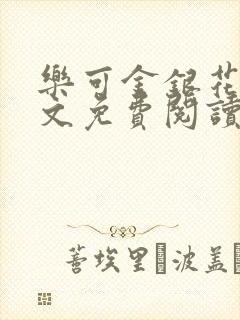 樂可金銀花
文免費閱讀
善埃里 波蓋